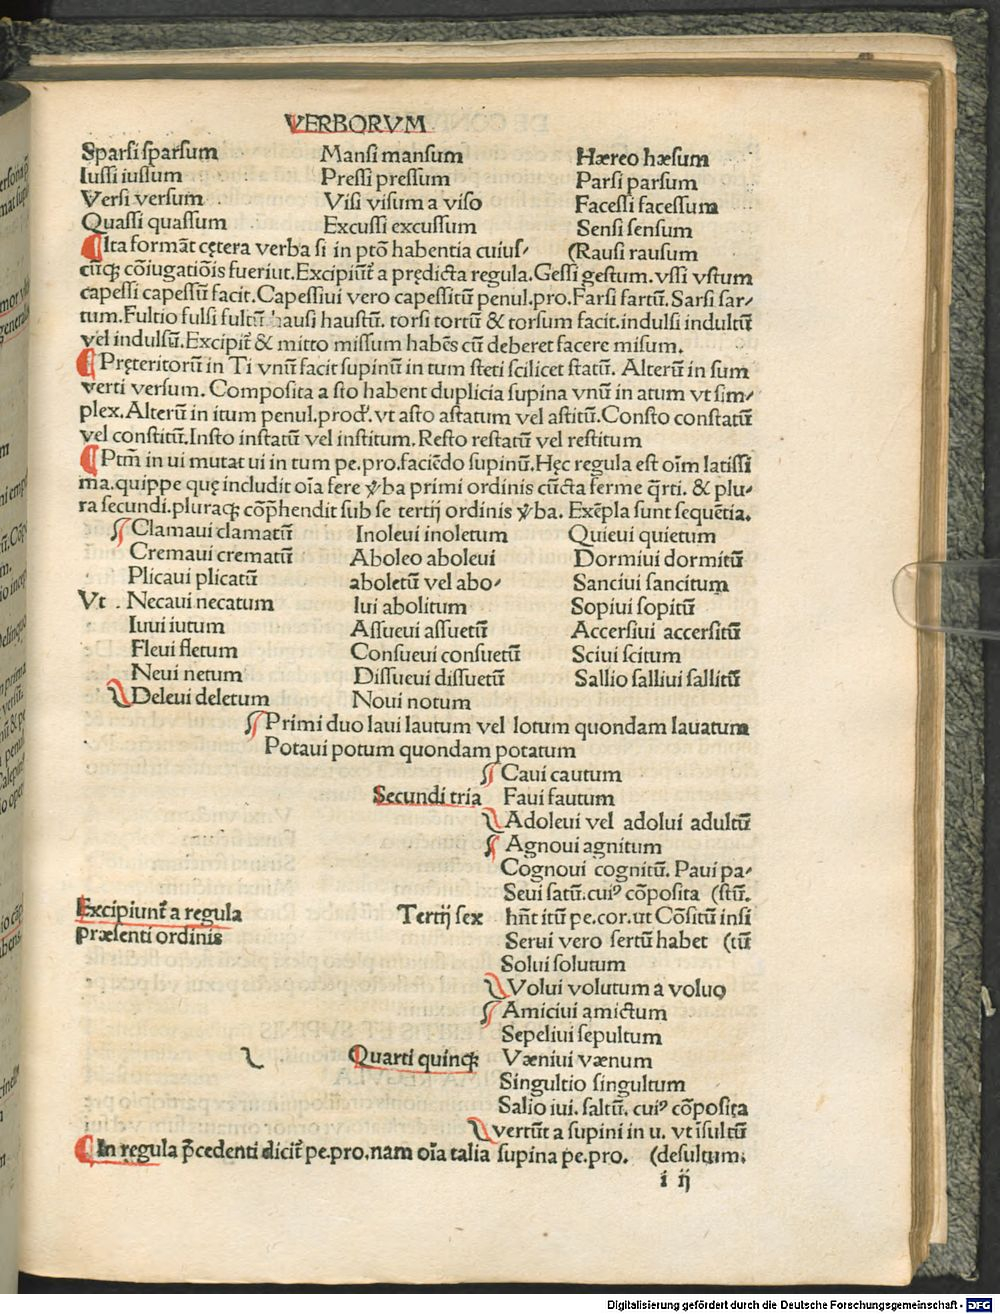 VERBORVM
Sparsi sparsum Mansi mansum Hæreo hæsum
Iussi iussum Pressi pressum Parsi parsum
Versi versum Visi visum a viso Facessi facessum
Quassi quassum Excussi excussum Sensi sensum
¶Ita formāt cętera verba si in ptō habentia cuius⸗ (Rausi rausum
cūqꝫ cōiugatiōis fueriut. Excipiūt̃ a prędicta regula. Gessi gestum. vssi vstum
capessi capessū facit. Capessiui vero capessitū penul. pro. Farsi fartū. Sarsi sar⸗
tum. Fultio fulsi fultū. hausi haustū. torsi tortū & torsum facit. indulsi indultū
vel indulsū. Excipit̃ & mitto missum habēs cū deberet facere misum.
¶Pręteritorū in Ti vnū facit supinū in tum steti scilicet statū. Alterū in sum
verti versum. Composita a sto habent duplicia supina vnū in atum vt sim⸗
plex. Alterū in itum penul. prod. vt asto astatum vel astitū. Consto constatū
vel constitū. Insto instatū vel institum. Resto restatū vel restitum
¶Ptm̄ in ui mutat ui in tum pe. pro. faciēdo supinū. Hęc regula est oīm latissi
ma. quippe quę includit oīa fere v̾ba primi ordinis cūcta ferme q̄rti. & plu⸗
ra secundi. pluraqꝫ cōp̄hendit sub se tertij ordinis v̾ba. Exēpla sunt sequētia.
Clamaui clamatū Inoleui inoletum Quieui quietum
Cremaui crematū Aboleo aboleui Dormiui dormitū
Plicaui plicatū aboletū vel abo⸗ Sanciui sancitum
Vt . Necaui necatum lui abolitum Sopiui sopitū
Iuui iutum Assueui assuetū Accersiui accersitū
Fleui fletum Consueui consuetū Sciui scitum
Neui netum Dissueui dissuetū Sallio salliui sallitū
Deleui deletum Noui notum
Primi duo laui lautum vel lotum quondam lauatum
Potaui potum quondam potatum
Caui cautum
Secundi tria Faui fautum
Adoleui vel adolui adultū
Agnoui agnitum
Cognoui cognitū. Paui pa⸗
Seui satū. cuiꝰ cōposita (stū.
Excipiunt̃ a regula Tertij sex hn̄t itū pe. cor. ut Cōsitū insi
præsenti ordinis Serui vero sertū habet (tū
Solui solutum
Volui volutum a voluo
Amiciui amictum
Sepeliui sepultum
Quarti quinqꝫ Væniui vænum
Singultio singultum
Salio iui. saltū. cuiꝰ cōposita
vertūt a supini in u. vt īsultū
¶In regula p̄cedenti dicit̃ pe. pro. nam oīa talia supina pe. pro. (desultum.
i ij
Digitalisierung gefördert durch die Deutsche Forschungsgemeinschaft - DFG